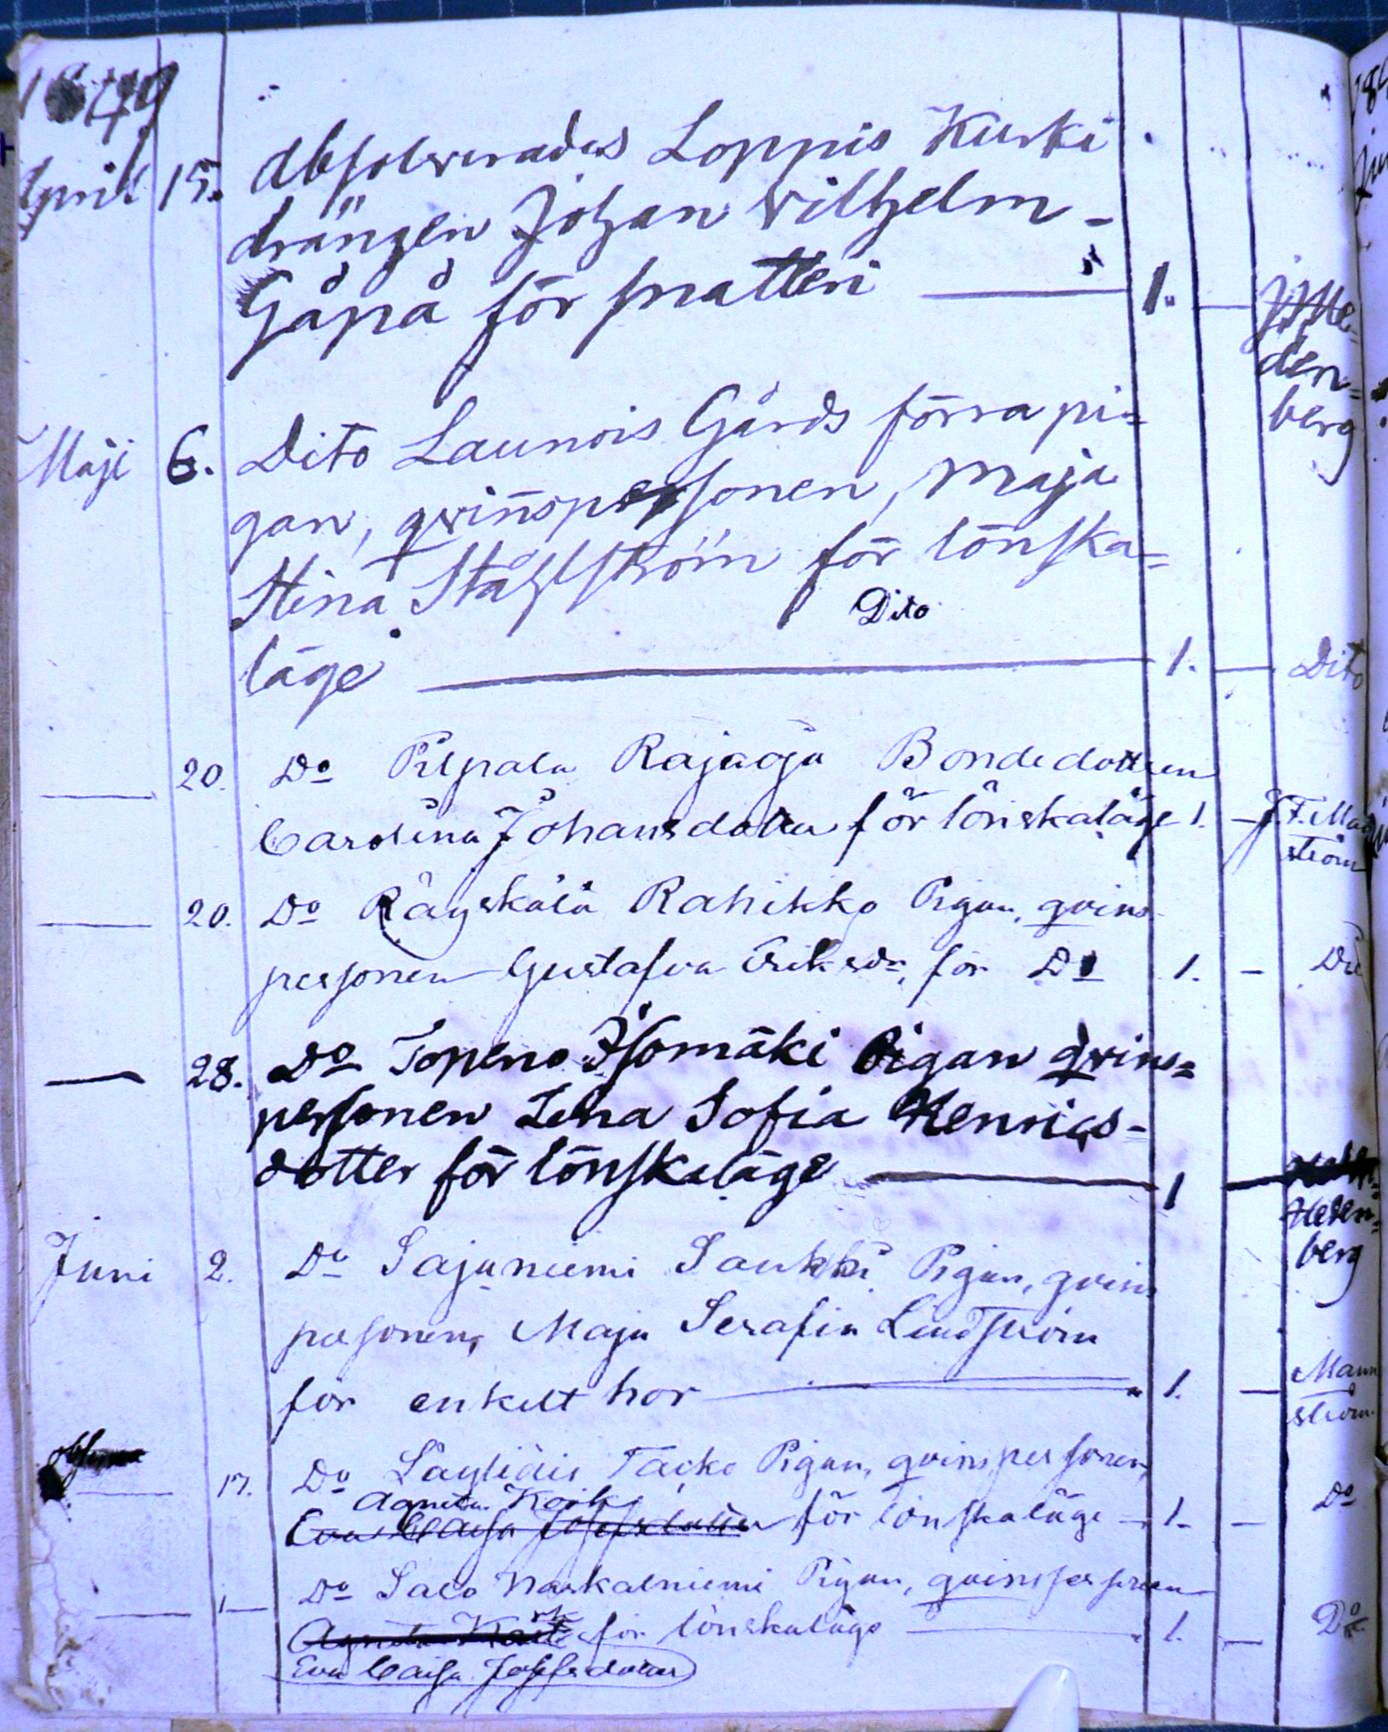 1849
April 15. Absolverades Loppis Kurki
drängen Johan Wilhelm
Gåpå för snatteri 1. —
den=
berg
Maji 6. Dito Launois Gårds förra pi=
gan, qvinspersonen, Maja
Stina Ståhlström för lönska=
Dito
läge 1. — Dito
20. Do Pilpala Rajaoja Bondedottren
Carolina Johansdotter för lönskaläge 1. —
ström
20. Do Räyskälä Rahikko Pigan, qvins
personen Gustafva Eriksdr, för Do 1. —
28. Do Topeno Isomäki Pigan qvins=
personen Lena Sofia Henrics-
dotter för lönskaläge 1 —
Heden=
berg
Juni 2. Do Sajaniemi Saukki Pigan, qvins
personen, Maja Serafia Lindström
för enkelt hor 1. — Mann
ström
17. Do Läyliäis Tacko Pigan, qvinspersonen,
Agneta Kork
Eva Caisa Josefsdotter för lönskaläge 1. — Do
Do Salo Pigan, qvinspersonen
Agneta för lönskaläge 1. — Do
Eva Caisa Josefsdotter